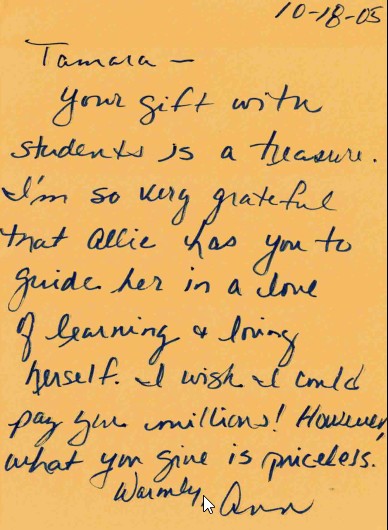 10-18-05
Tamara —
Your gift with
students is a treasure.
I'm so very grateful
that Allie has you to
guide her in a love
of learning & loving
herself. I wish I could
pay you millions! However,
what you give is priceless.
Warmly, Ann